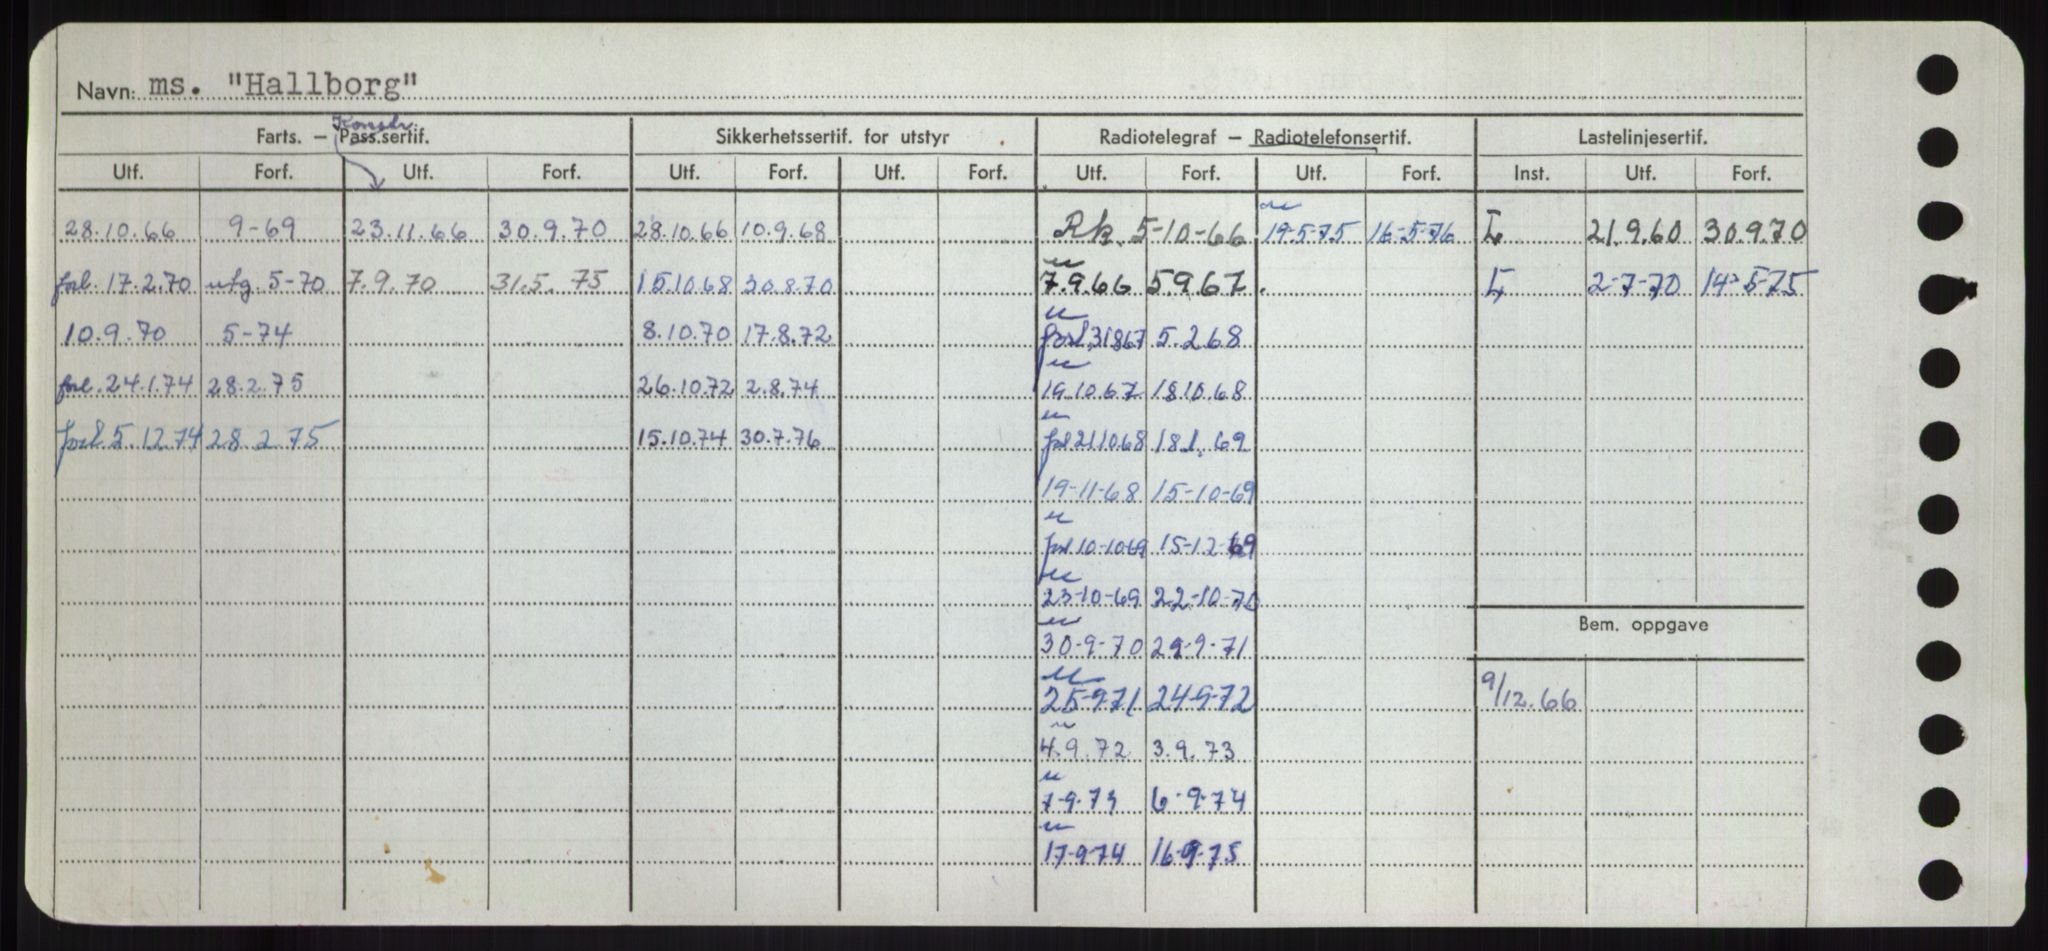 Navn: ms. "Hallborg"
Farts. – Pass.sertif. Konstr. Sikkerhetssertif. for utstyr Radiotelegraf – Radiotelefonsertif. Lastelinjesertif.
Utf. Forf. Utf. Forf. Utf. Forf. Utf. Forf. Utf. Forf. Utf. Forf. Inst. Utf. Forf.
28.10.66 9-69 23.11.66 30.9.70 28.10.66 10.9.68 Rk. 5-10-66 19-5-75 16-5-76 L 21.9.60 30.9.70
forl. 17.2.70 utg. 5-70 7.9.70 31.5.75 15.10.68 30.8.70 7.9.66 5.9.67. L 2-7-70 14-5-75
10.9.70 5-74 8.10.70 17.8.72 forl 31867 5.2.68
forl. 24.1.74 28.2.75 26.10.72 2.8.74 19.10.67 18.10.68
forl. 5.12.74 28.2.75 15.10.74 30.7.76 forl 21.10.68 18.1.69
19-11-68 15-10-69
forl 10-10-69 15-12-69
23-10-69 22-10-70
Bem. oppgave
30-9-70 29-9-71
25-9-71 24-9-72 9/12.66
4.9.72 3.9.73
7-9-73 6-9-74
17-9-74 16-9-75